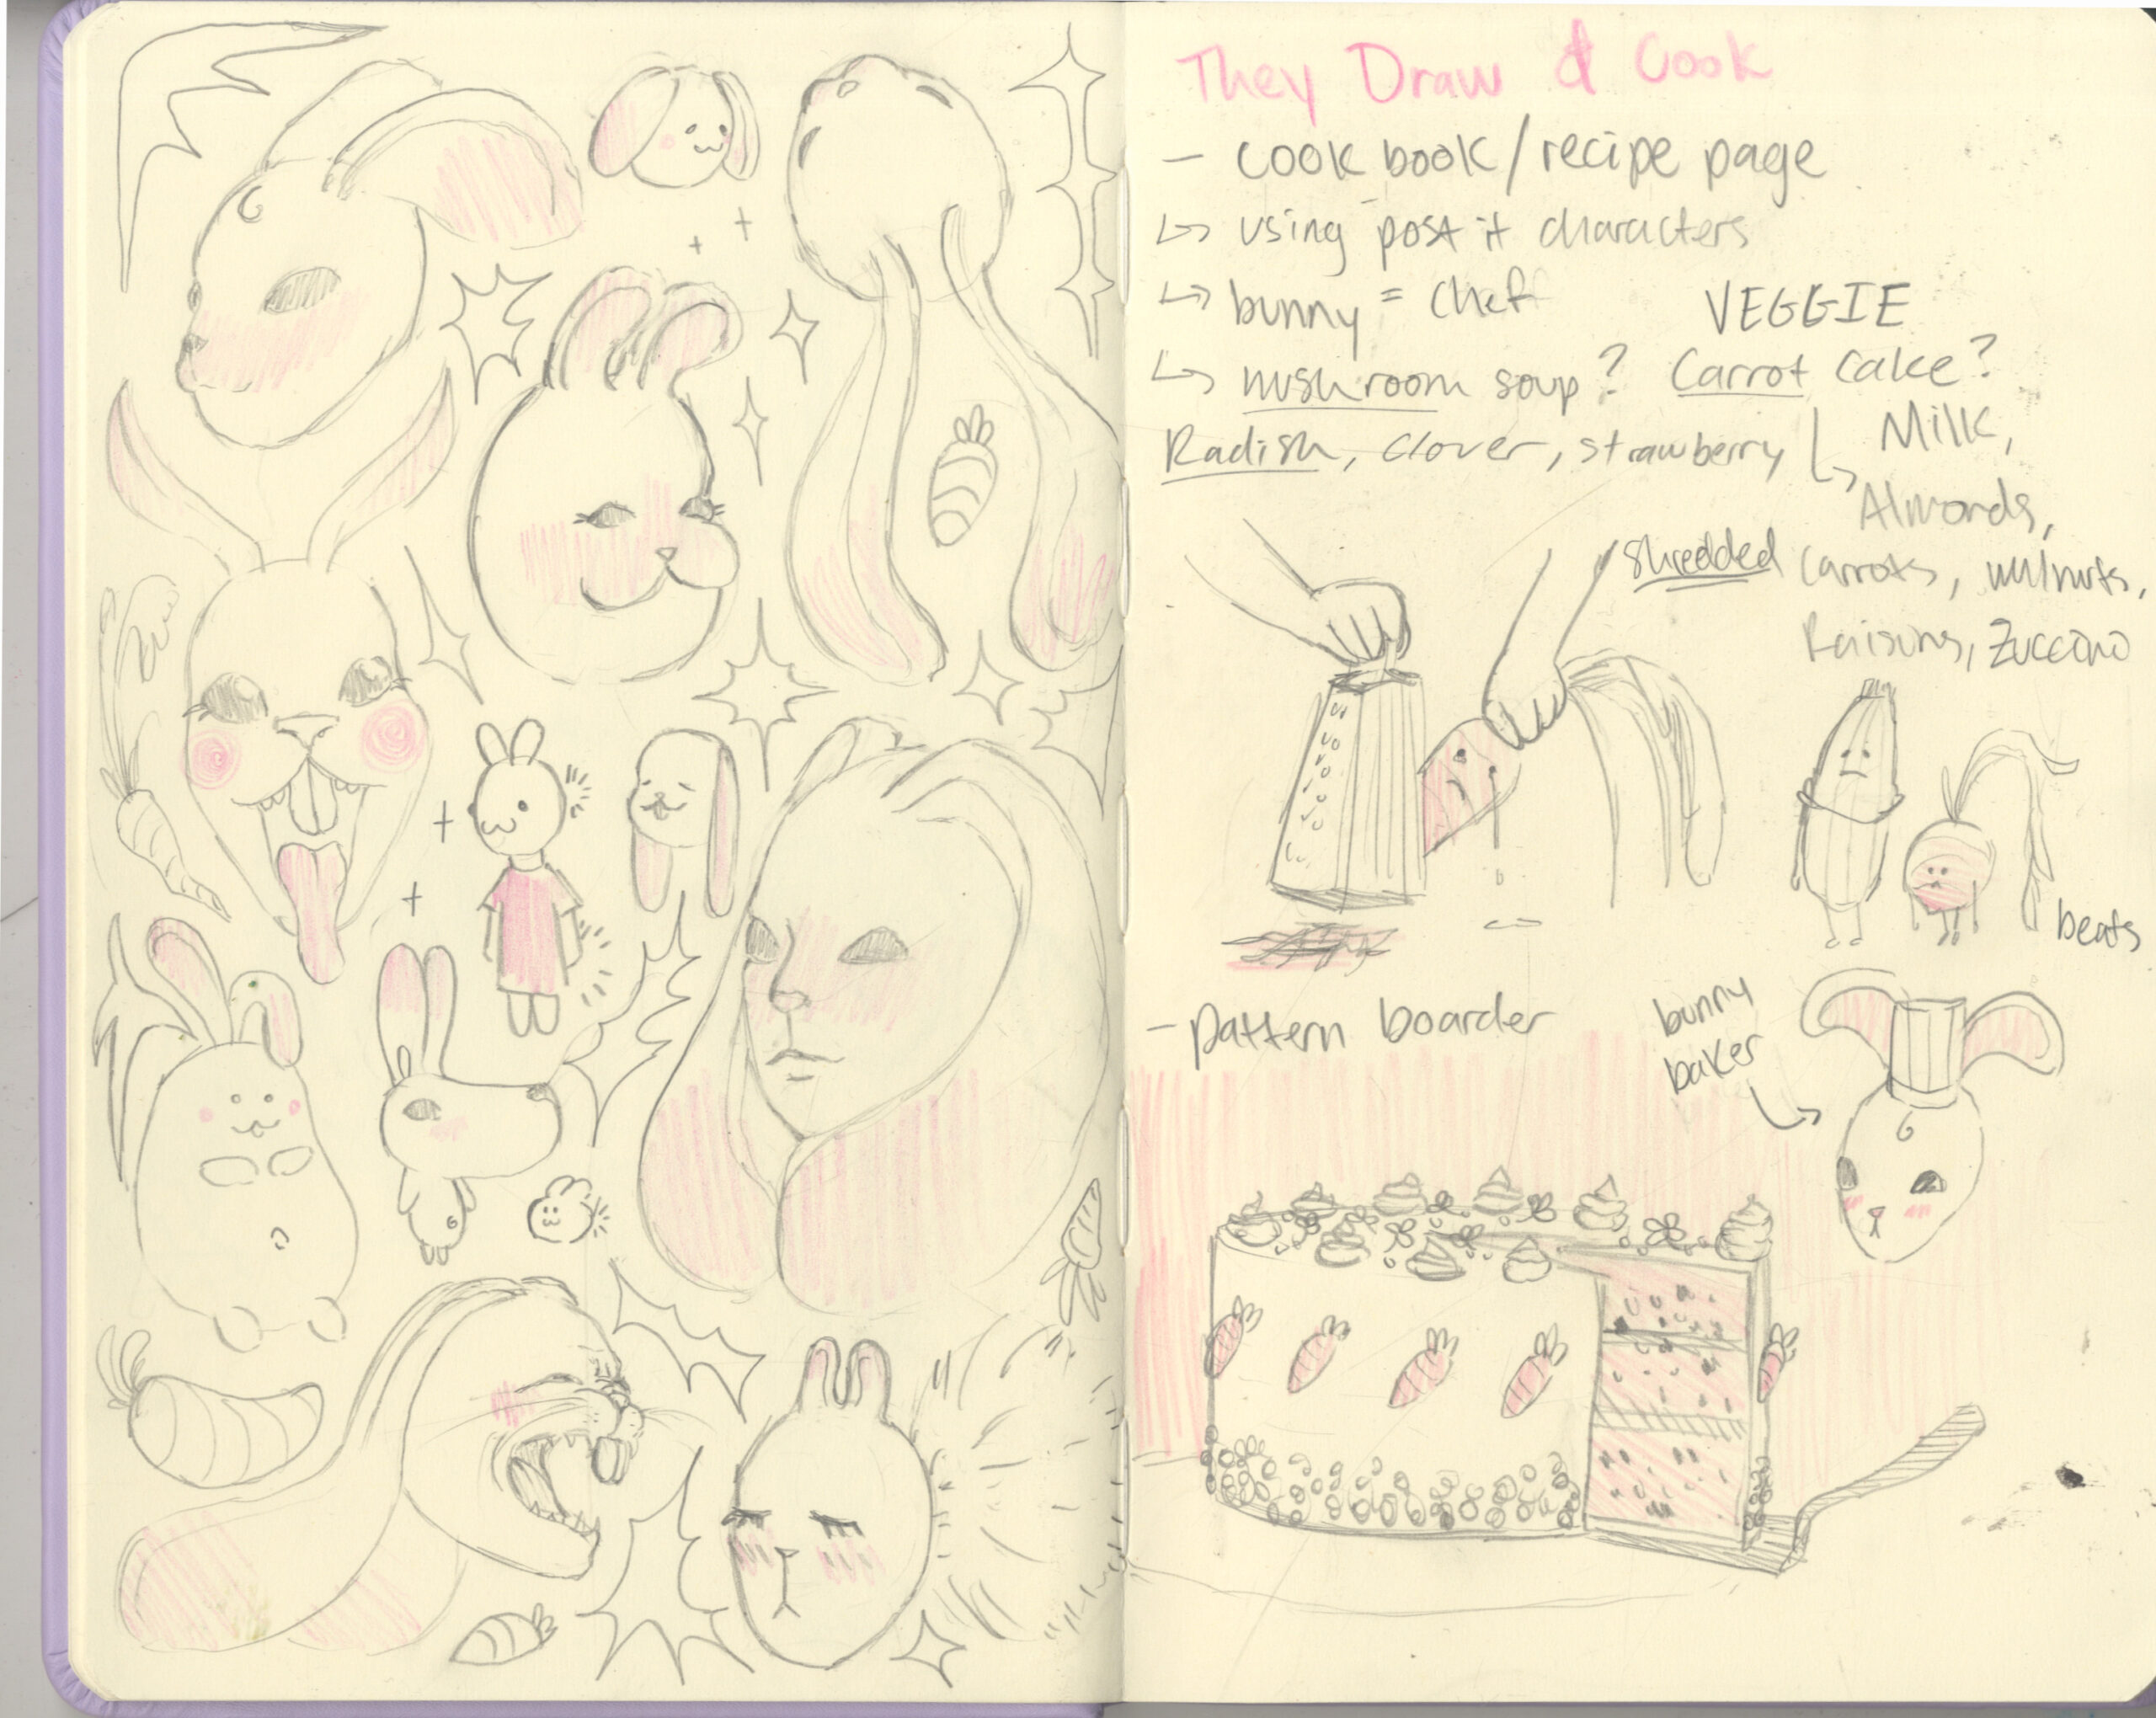 They Draw & Cook
- cook book/recipe page
↳ using post it characters
↳ bunny = chef
VEGGIE
↳ mushroom soup? Carrot cake?
Radish, Clover, strawberry
↳ Milk,
Almonds,
shredded carrots, wulnuts,
Raisins, Zuccino
beats
- pattern boarder
bunny
baker